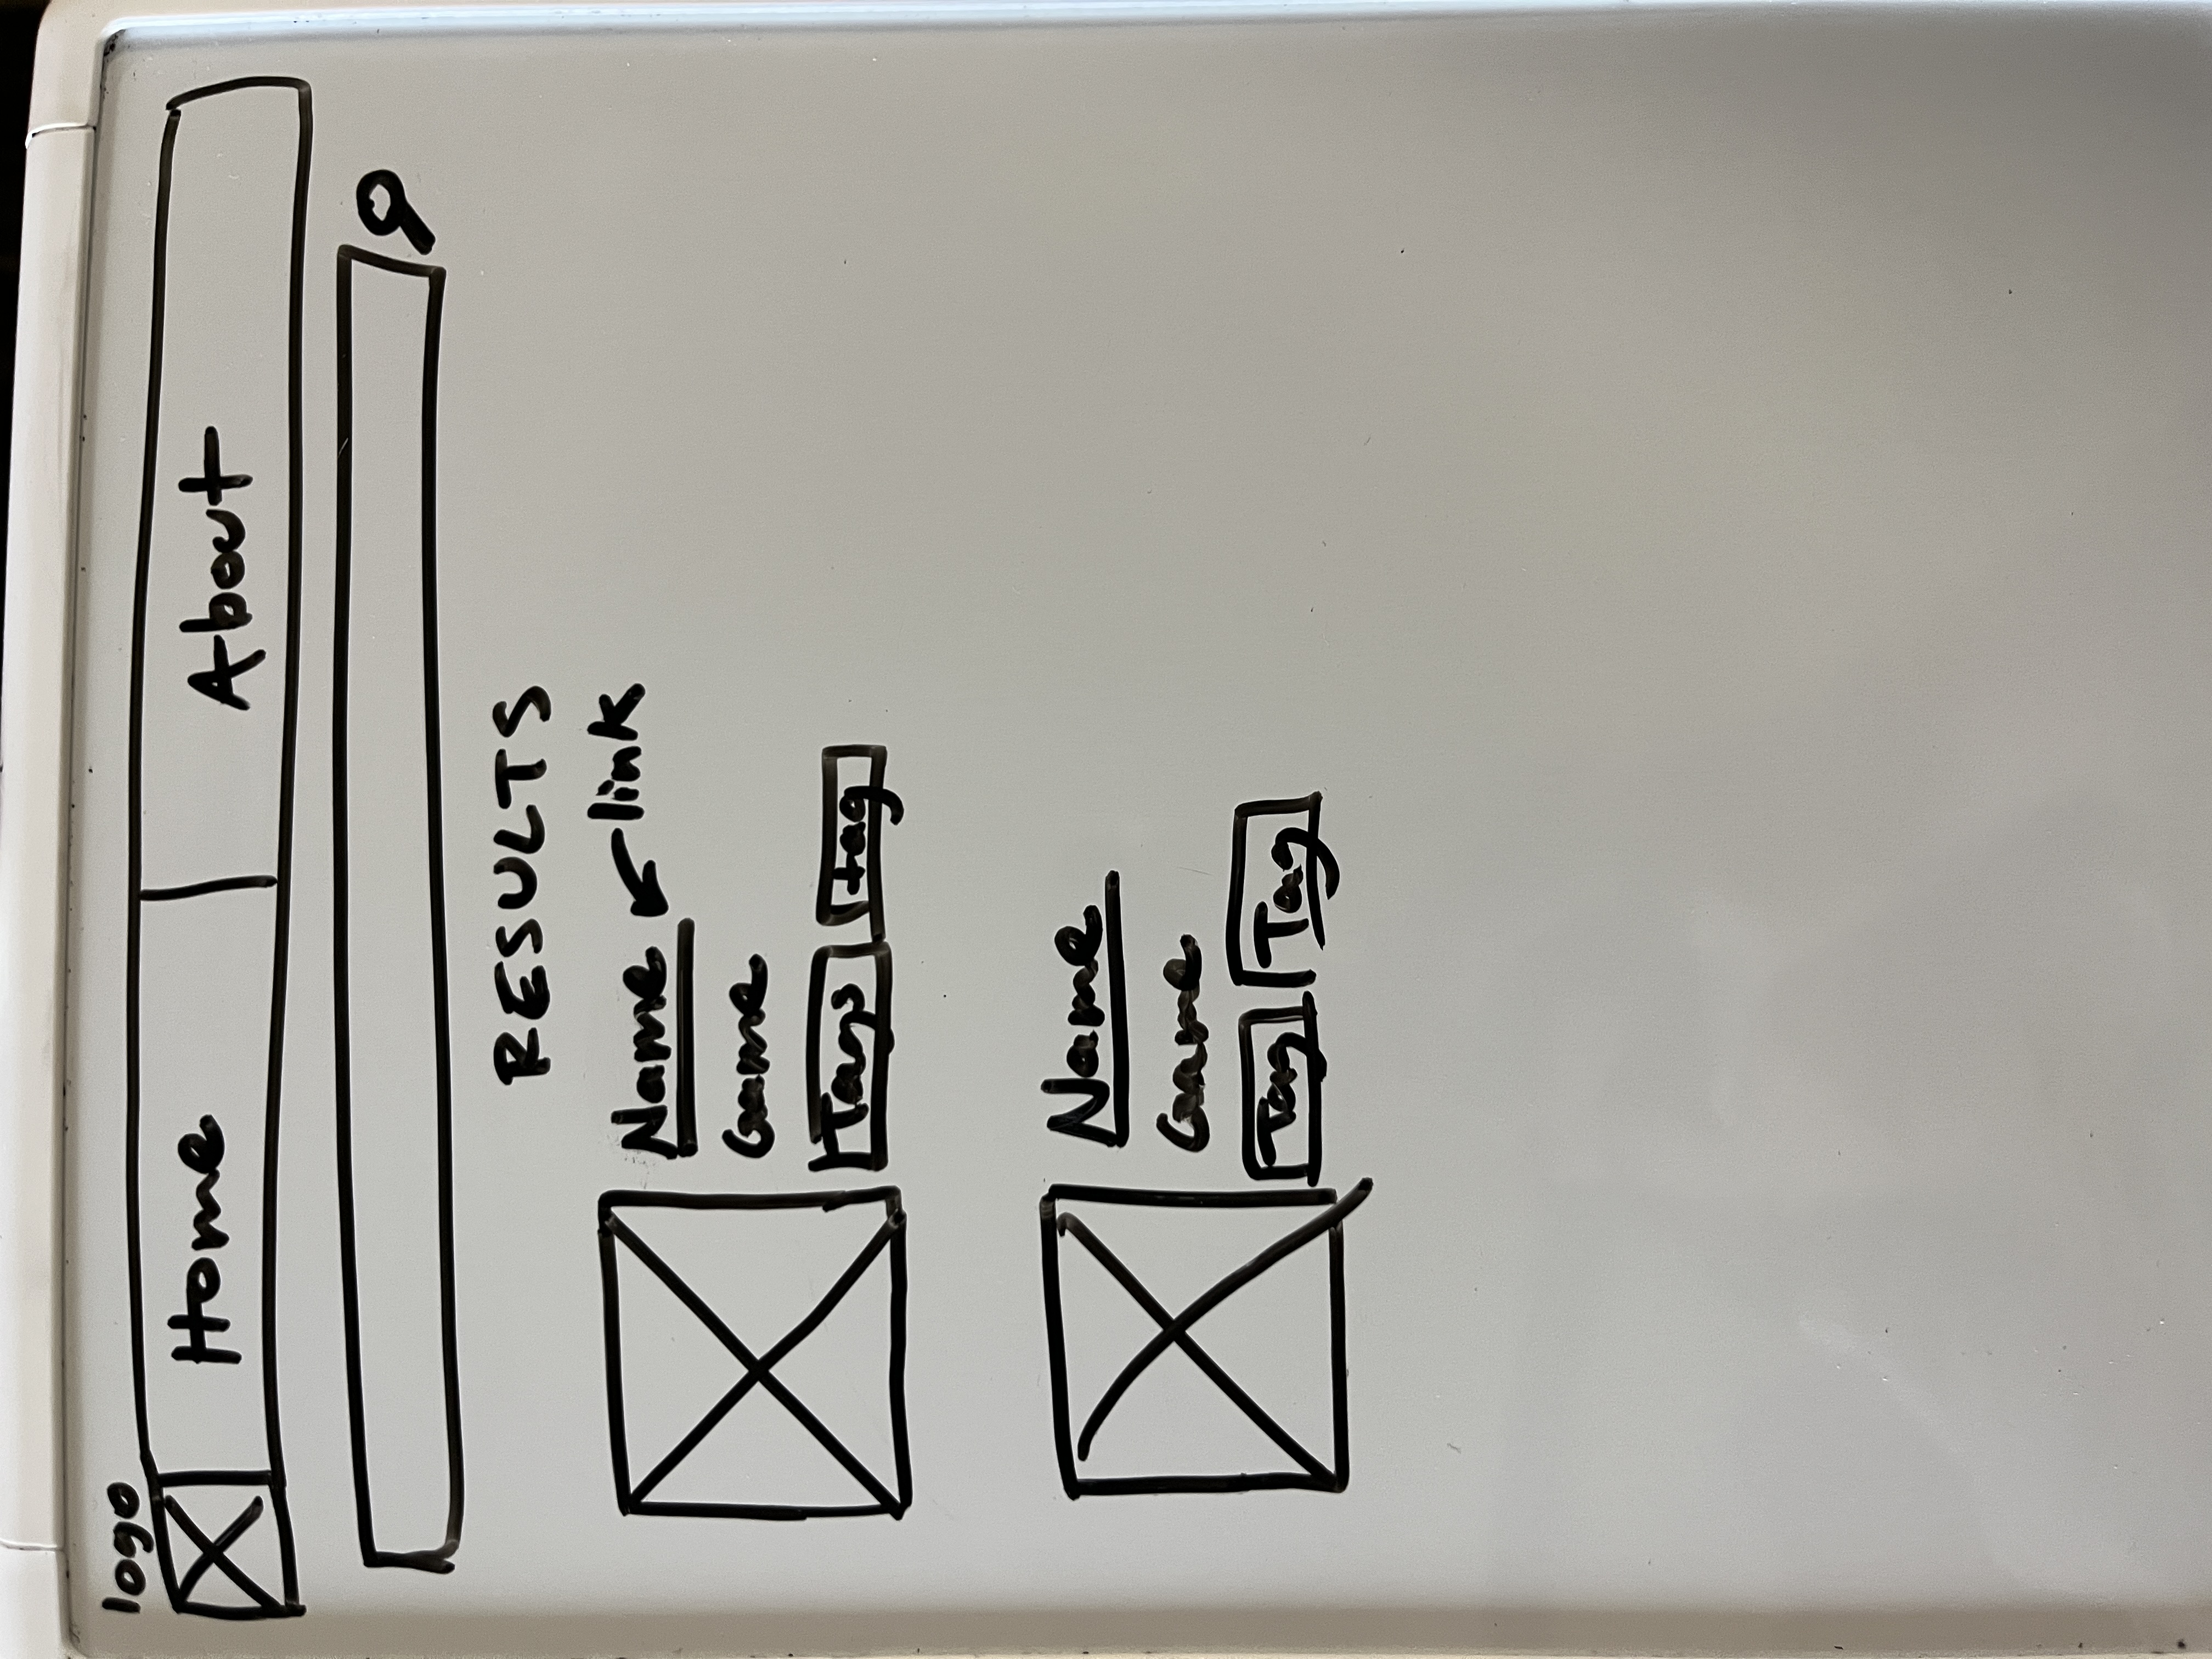 logo
Home About
RESULTS
Name link
Game
Tags tag
Name
Game
Tag Tag